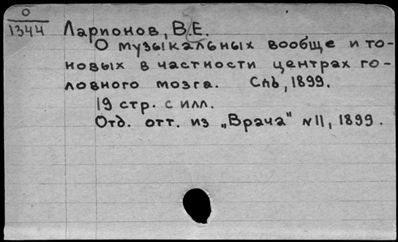 О
1344
Ларионов, В.Е.
О музыкальных вообще и то-
новых в частности центрах го-
ловного мозга. Спб, 1899.
19 стр. с илл.
Отд. отт. из „Врача" №11, 1899.